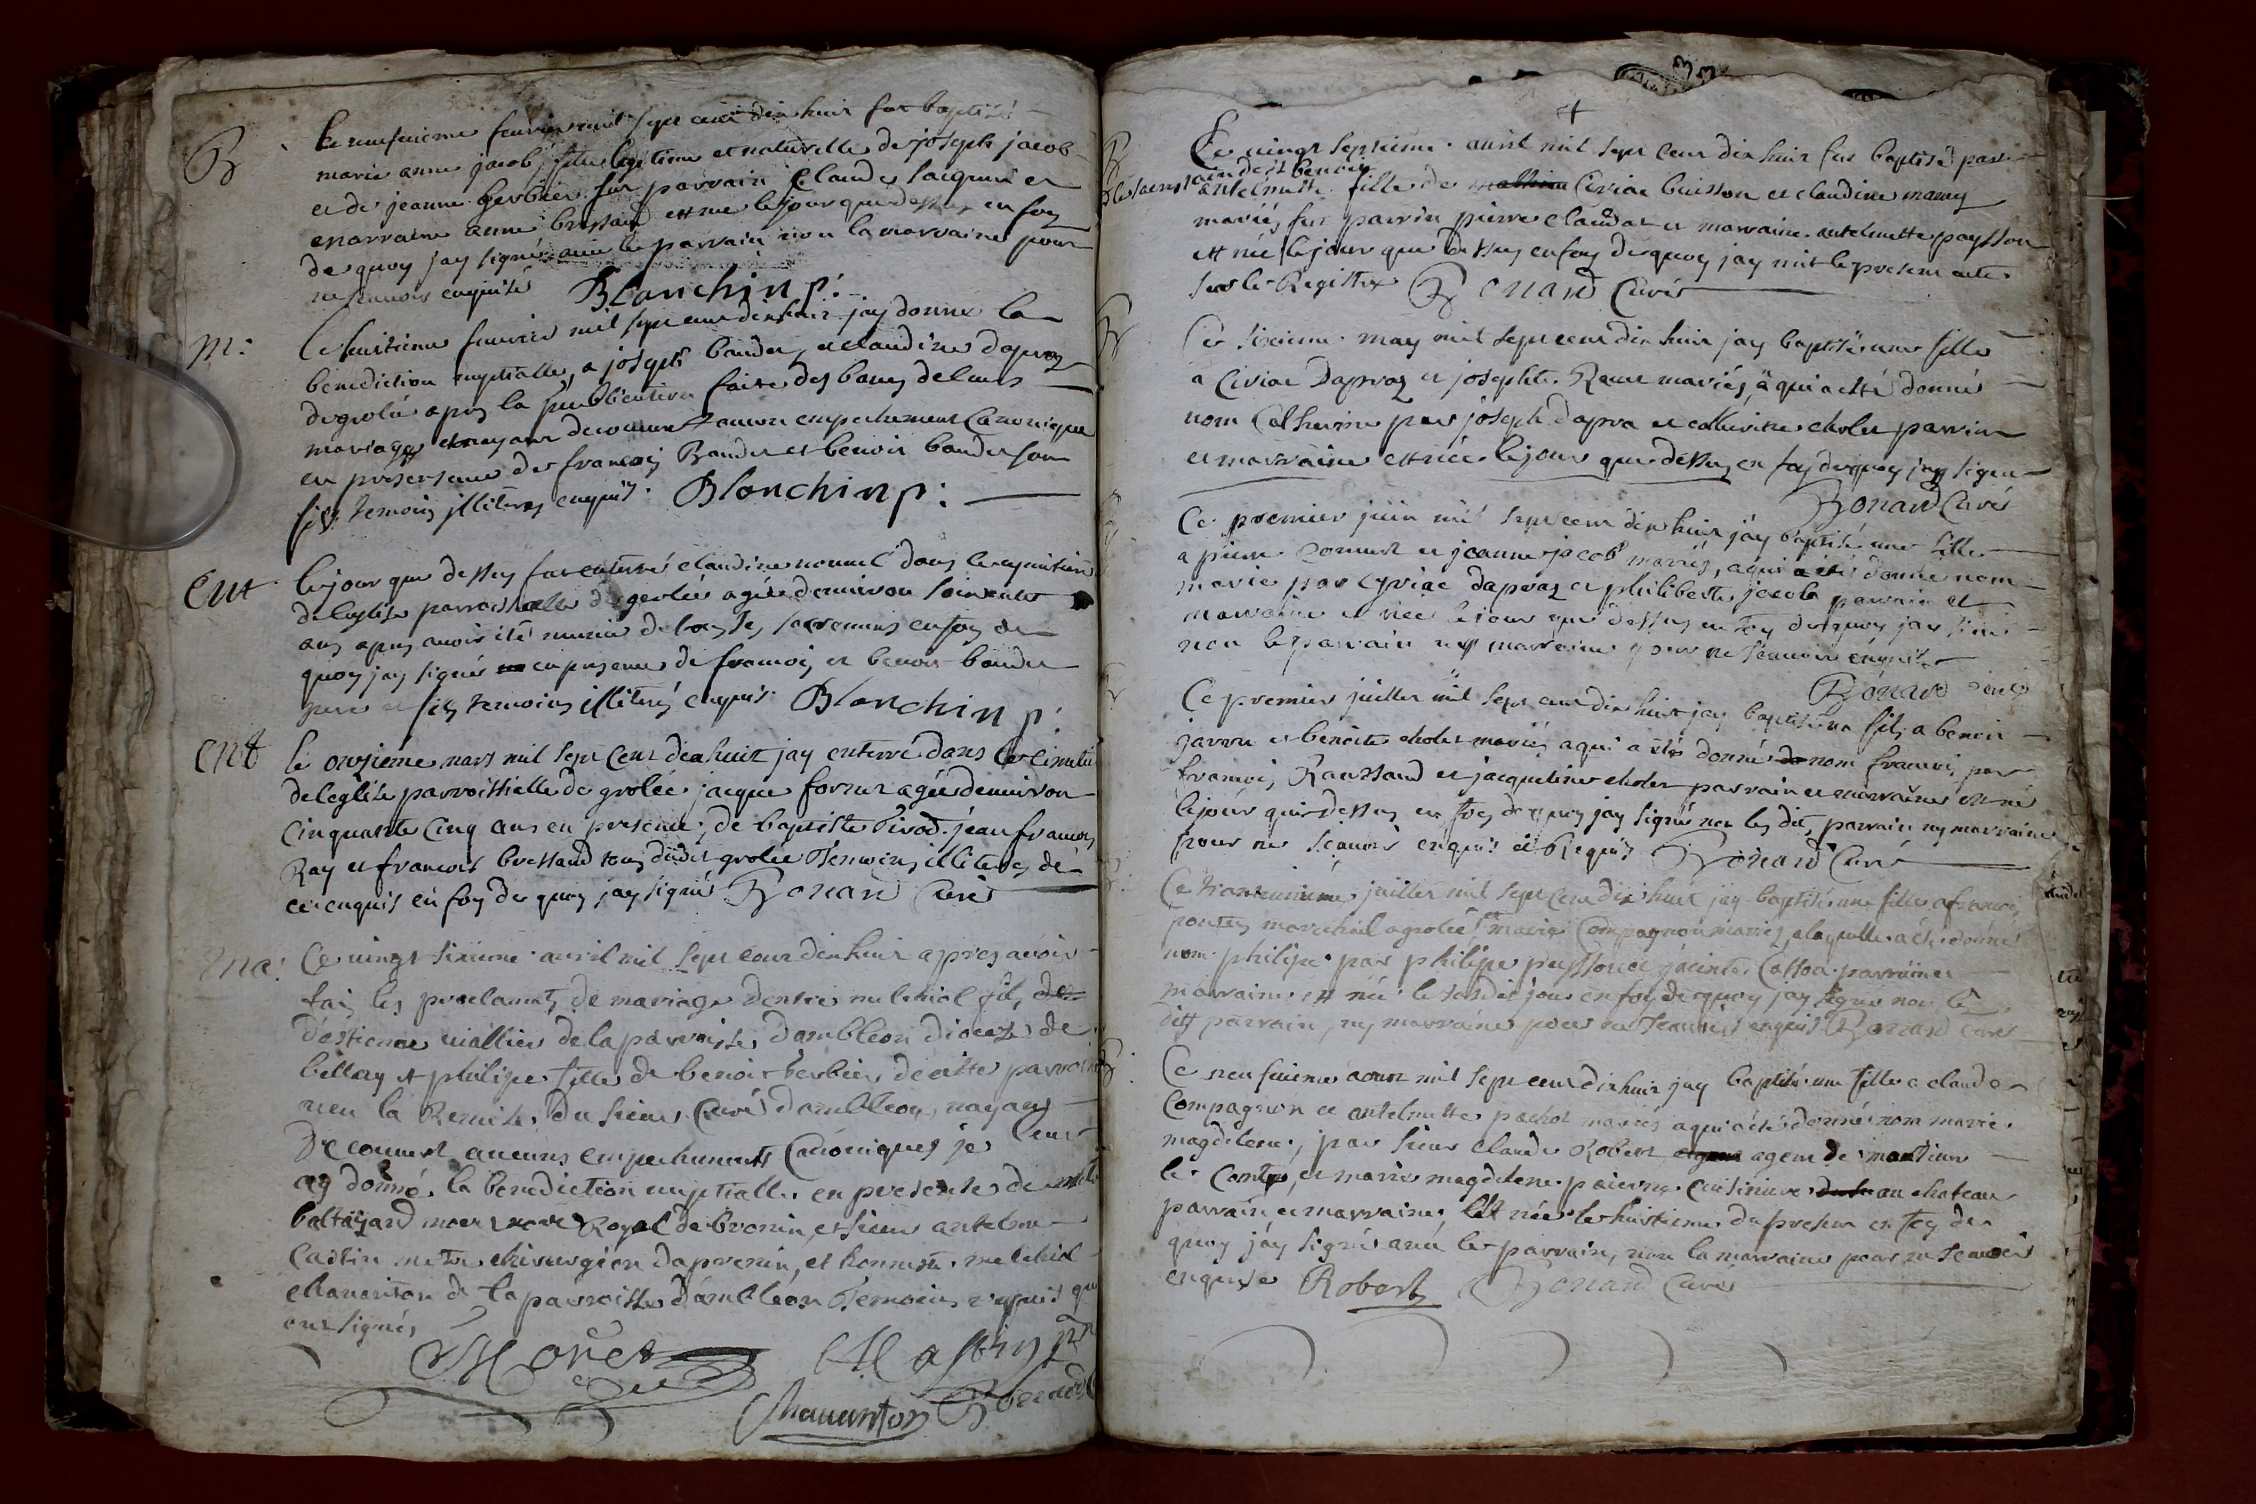 B
Le neufuieme feurier mil sept cent dix huit fut baptisé
marie anne jacob, fille legitime et naturelle de joseph jacob
et de jeanne berbier fut parrain Claude jacquin et
marraine anne bressand est nee le jour que dessus en foy
de quoy jay signé auec le parrain non la marraine pour
ne scauoir enquise Blanchin p:
m:
Ce huitieme feurier mil sept cent dix huit jay donné la
benediction nuptialle, a joseph bander, et claudine dapraz
de grolée apres la publication faite des bans de leurs
mariages et nayant decouuert aucun empechement Canonique
en presence de francois Bander et benoit bander son
fils temoins illiteres enquis. Blanchin p:
Ent
le jour que dessus fut enterré claudine dans le cymitiere
de leglise parroissialle de grolée agée denuiron soixante
ans apres auoir été munie de tous les sacremens en foy de
quoy jay signé en presence de francois et benoit bander
pere et fils temoins illiterés enquis. Blanchin p:
Ent
le onzieme mars mil sept cent dix huit jay enterré dans le Cimetie
de leglise parroissielle de grolée jacque agée denuiron
Cinquante Cinq ans en presence de baptiste Pirod. jean francois
Ray et francois bressand tous dudit grolée Temoins illiteres de
ce enquis en foy de quoy jay signé Bonard Curé
Ma:
Ce vingt sixieme auril mil sept cent dix huit apres auoir
fait les proclamats de mariage dentre melchiol fils de
destienne uiallier de la parroisse dambleon diocese de
bellay et philipe fille de benoit berbier de cette parroisse
ueu la Remise du sieur Curé dambleon, nayant
decouuert aucuns empechements Canoniques je leur
ay donné la benediction nuptialle en presence de
Royal de brenin, et sieur antelme
Castin metre chirurgien et honneste melchiol
Chauanton de la parroisse dambleon Temoins requis qui
ont signés
Moret Castin
Chauanton Bonard C
B
Ce vingt septieme auril mil sept cent dix huit fut baptisé par
antelmette fille de Ciriac buisson et claudine mamy
mariés fut parrin pierre claudat et marraine antelmette paysson
est née le jour que dessus en foy de quoy jay mit le present acte
sur le Registre Bonard Curé
B
Ce sixieme may mil sept cent dix huit jay baptisé une fille
a Ciriac Dapraz et josephte Raux mariés, a qui a esté donné
nom Catherine par joseph dapra et catherine cholet parrin
et marraine est née le jour que dessus en foy de quoy jay signé
Bonard Curé
Ce premier juin mil sept cent dix huit jay baptisé une fille
a pierre et jeanne jacob mariés, a qui a été donné nom
marie par Cyriac dapraz et philiberte jacob parrain et
marraine est née le jour que dessus en foy de quoy jay signé
non le parrain ny marraine pour ne scauoir enquis
Bonard Curé
Ce premier juillet mil sept cent dix huit jay baptisé un fils a benoit
jarrin et benoite cholet mariés a qui a été donné nom francois par
francois Raussand et jacqueline cholet parrain et marraine est né
le jour que dessus en foy de quoy jay signé non les dits parrain ny marraine
pour ne scauoir enquis et requis Bonard Curé
Ce trantunieme juillet mil sept cent dix huit jay baptisé une fille a francois
marechal a grolée et marie Compagnon mariés a laquelle a été donné
nom philipe par philipe peysson et parrain et
marraine est née le susdit jour en foy de quoy jay signé non le
dit parrain, ny marraine pour ne scauoir enquis Bonard Curé
B
Ce neufuieme aoust mil sept cent dix huit jay baptisé une fille a claude
Compagnon et antelmette pachot mariés a qui a été donné nom marie
magdelene, par sieur claude Robert agent de
le Conte, et marie magdelene cuisiniere au chateau
parrain et marraine Est née le huitieme du present en foy de
quoy jay signé auec le parrain, non la marraine pour ne scauoir
enquise Robert Bonard Curé